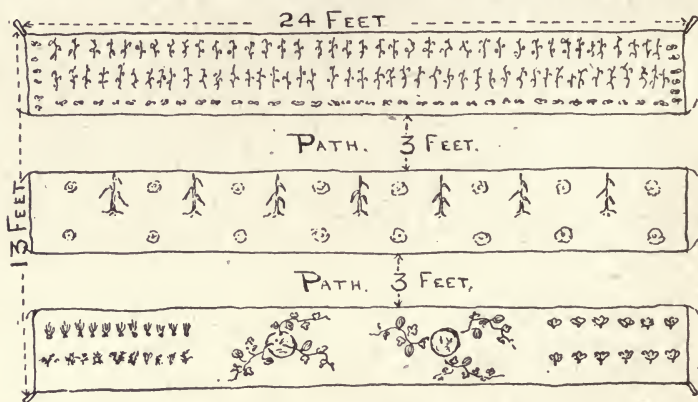 24 FEET
PATH. 3 FEET.
13 FEET
PATH. 3 FEET,